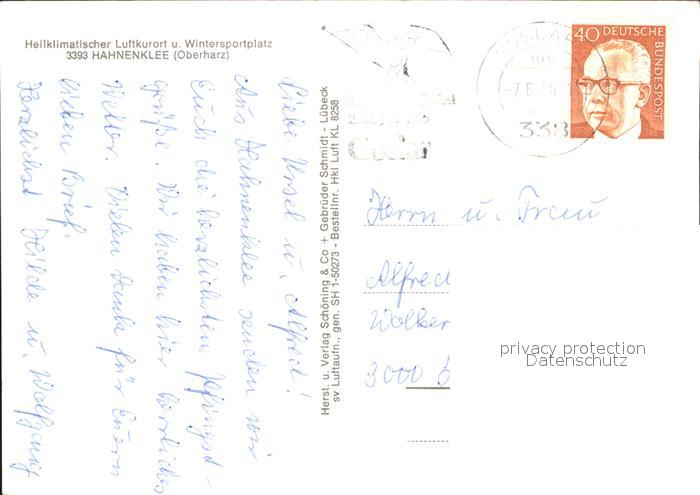 Heilklimatischer Luftkurort u. Wintersportplatz
3393 HAHNENKLEE (Oberharz)
Liebe Ursel u. Alfred!
Aus Hahnenklee senden wir
Euch die herzlichsten Pfingst-
grüße. Wir haben hier herrliches
Wetter. Vielen Dank für Euern
lieben Brief.
Herzlichst Hilde u. Wolfgang
Herst. u. Verlag Schöning & Co + Gebrüder Schmidt - Lübeck
sv Luftaufn., gen. SH 1-50273 - Bestellnr. Hkl Luft KL 8258
40 DEUTSCHE
BUNDESPOST
338
Herrn u. Frau
Alfred
3000
privacy protection
Datenschutz